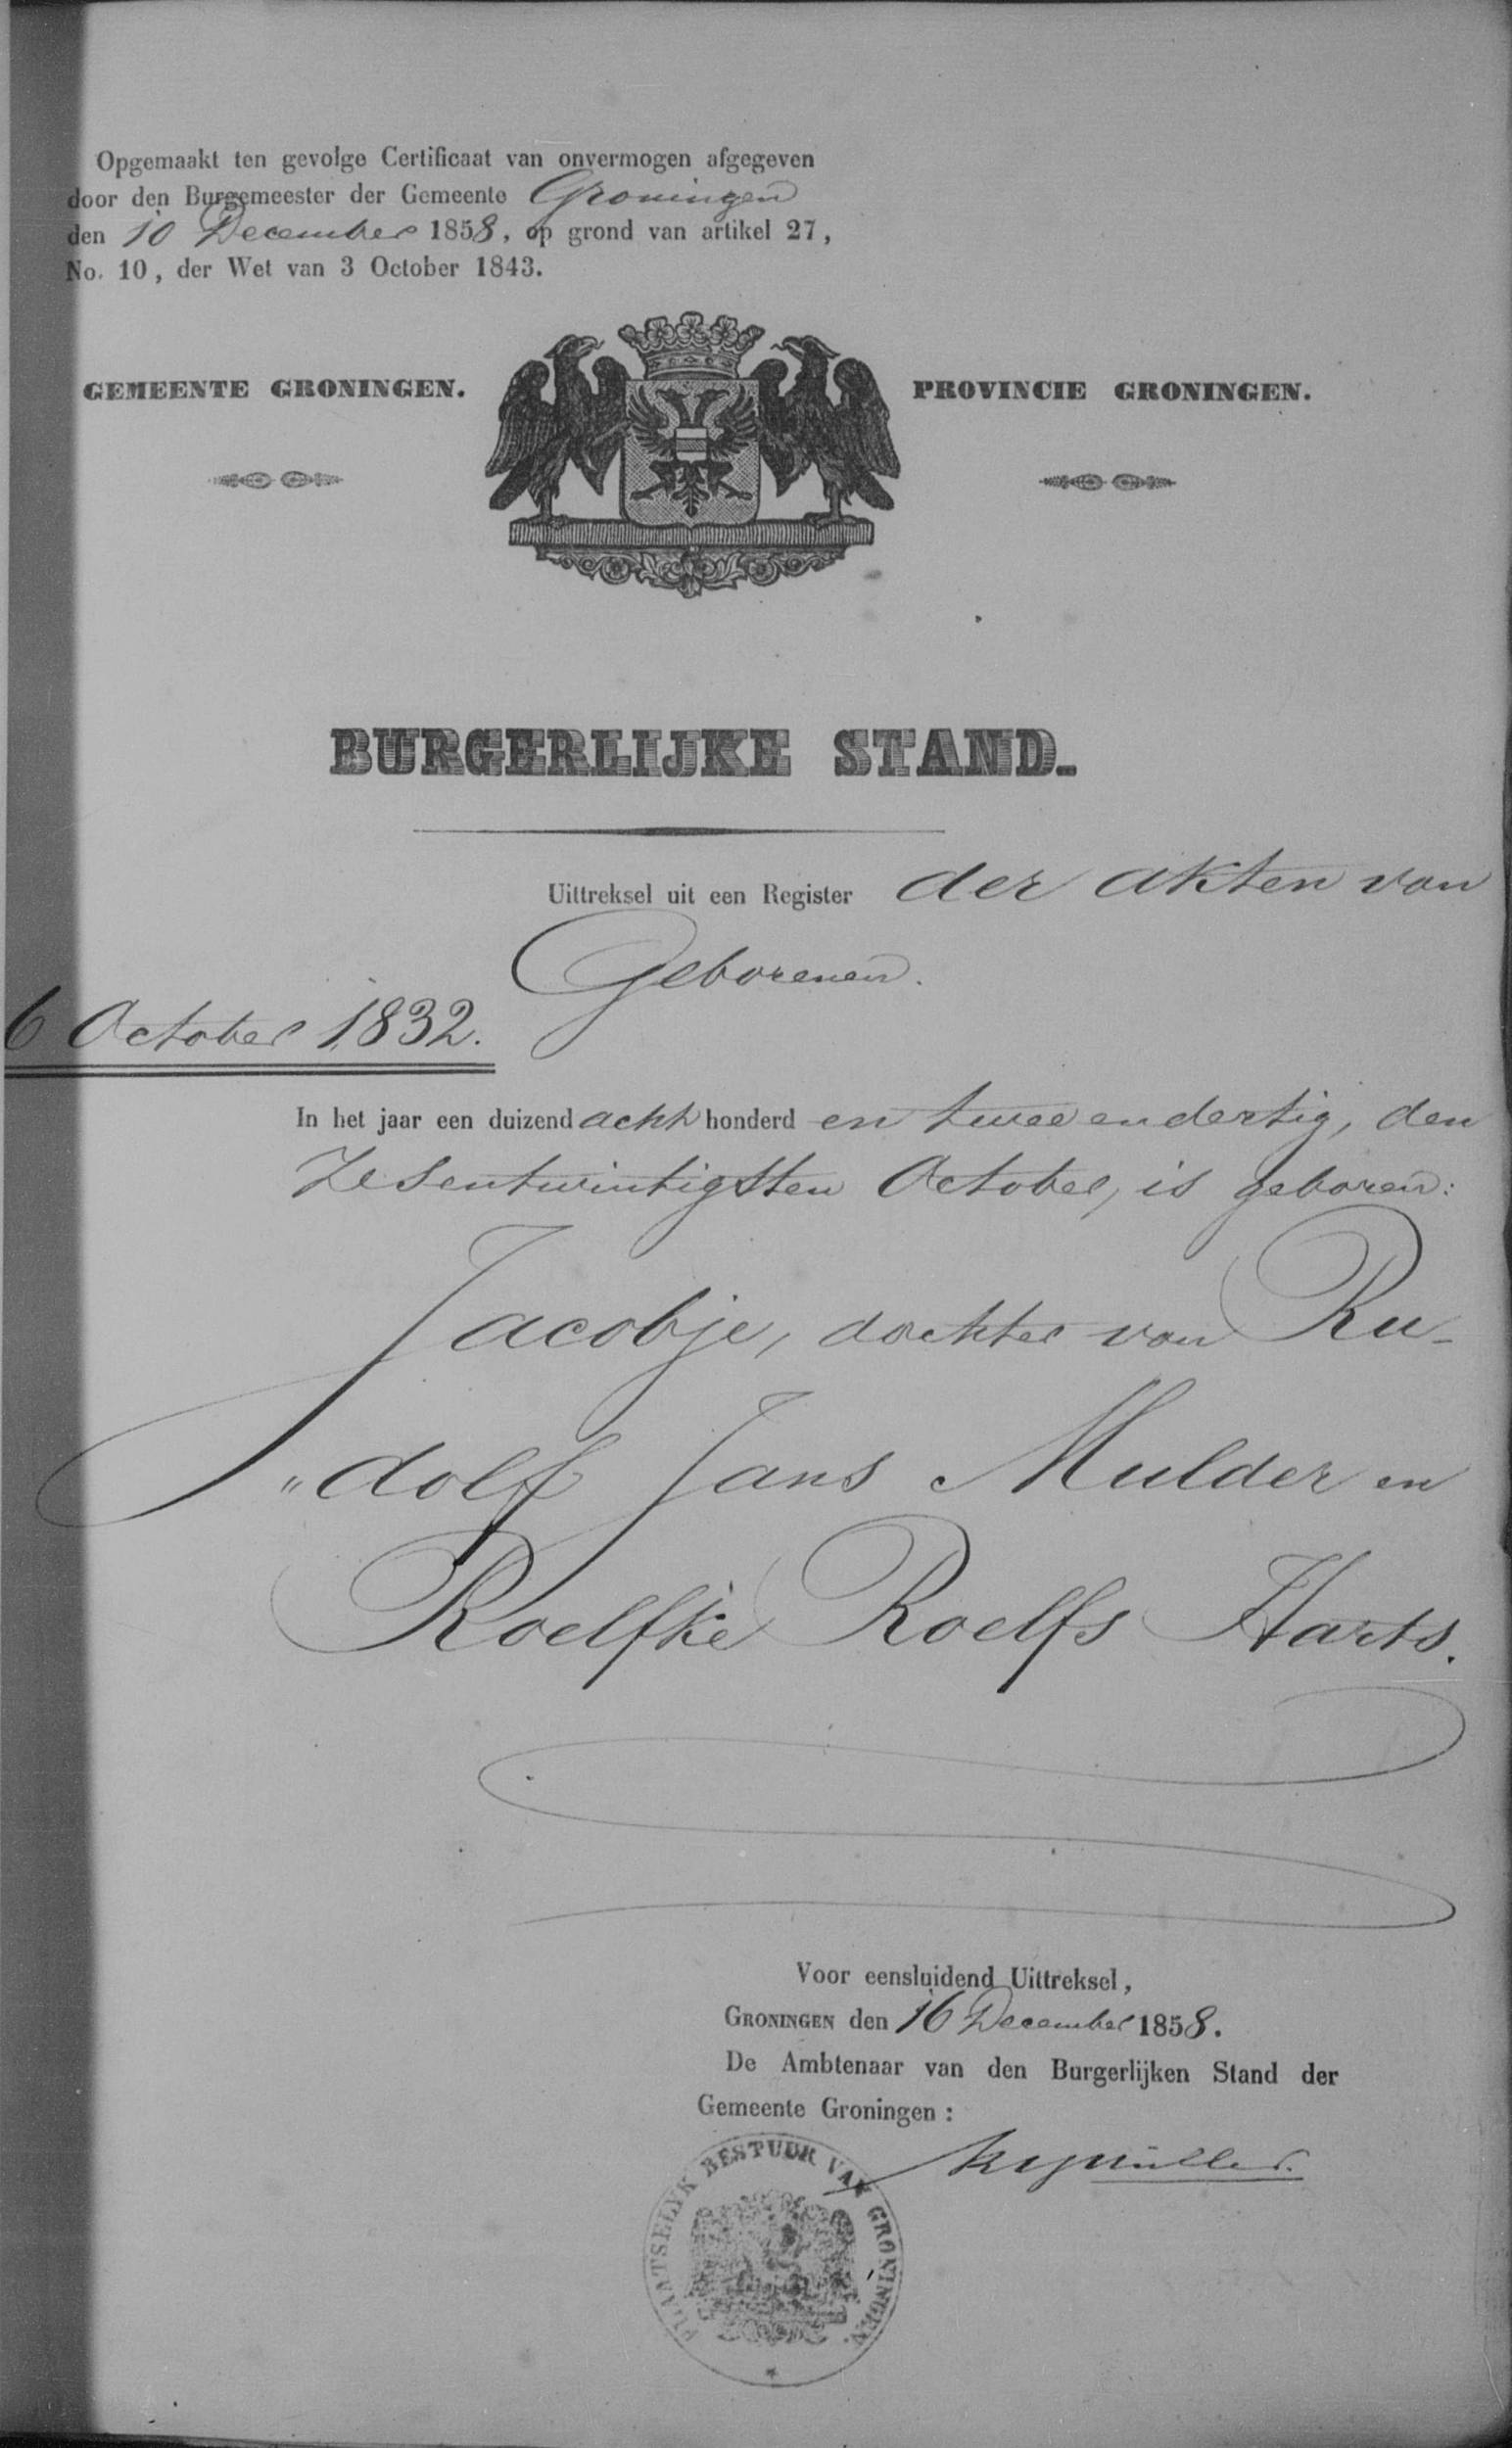 Opgemaakt ten gevolge Certificaat van onvermogen afgegeven
door den Burgemeester der Gemeente Groningen
den 10 December 1858, op grond van artikel 27,
No. 10, der Wet van 3 October 1843.
GEMEENTE GRONINGEN. PROVINCIE GRONINGEN.
BURGERLIJKE STAND.
Uittreksel uit een Register der akten van
Geborenen.
6 October 1832.
In het jaar een duizend acht honderd en twee en dertig, den
Zesentwintigsten October, is geboren:
Jacobje, dochter van Ru-
"dolf Jans Mulder en
Roelfke Roelfs Harts.
Voor eensluidend Uittreksel,
GRONINGEN den 16 December 1858.
De Ambtenaar van den Burgerlijken Stand der
Gemeente Groningen:
PLAATSELYK BESTUUR VAN GRONINGEN.